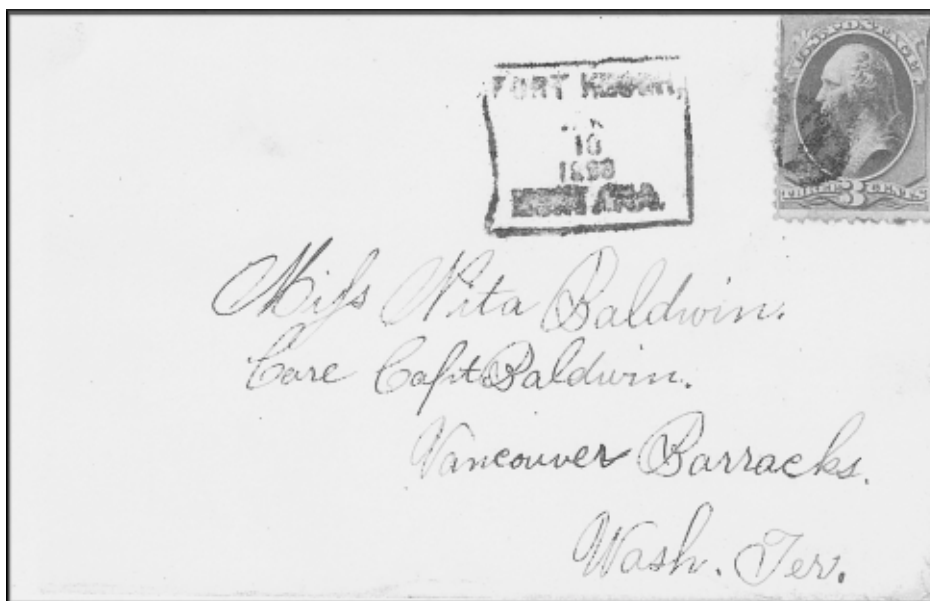 FORT KEOGH,
10
MONTANA.
U.S. POSTAGE
THREE 3 CENTS
Miss Nita Baldwin.
Care Capt. Baldwin.
Vancouver Barracks.
Wash. Ter.